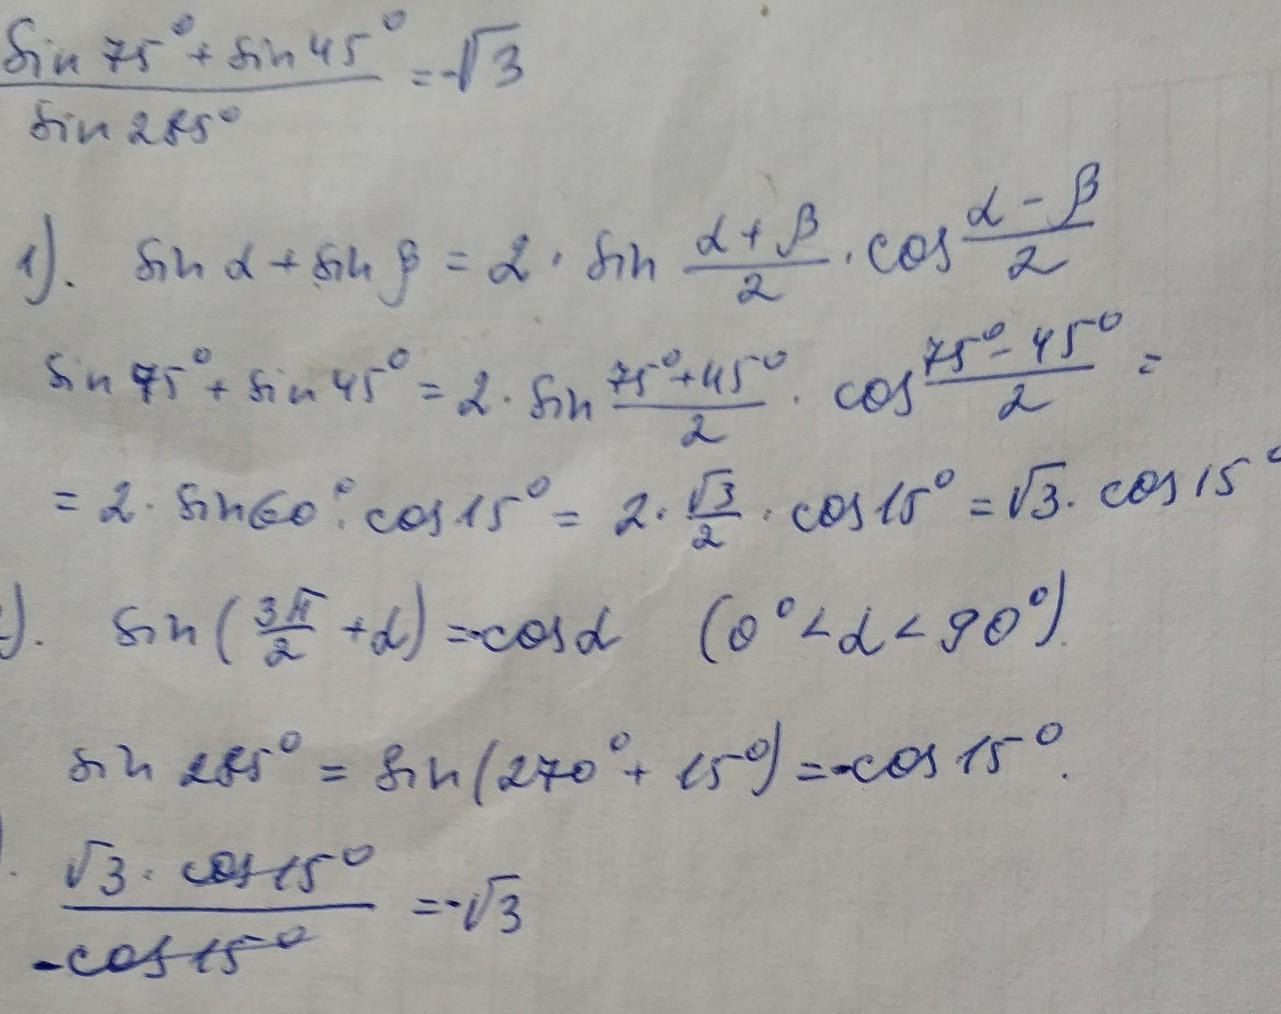 (sin 75° + sin 45°) / sin 285° = -√3
1). sin α + sin β = 2 · sin (α + β)/2 · cos (α - β)/2
sin 75° + sin 45° = 2 · sin (75° + 45°)/2 · cos (75° - 45°)/2 =
= 2 · sin 60° · cos 15° = 2 · √3/2 · cos 15° = √3 · cos 15°
). sin (3π/2 + α) = -cos α (0° < α < 90°).
sin 285° = sin (270° + 15°) = -cos 15°.
. (√3 · cos 15°) / (-cos 15°) = -√3